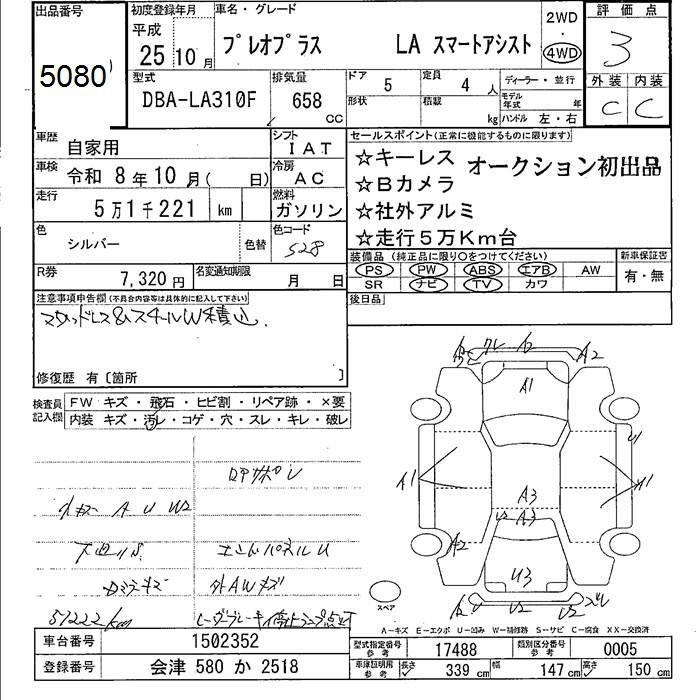 出品番号
5080
初度登録年月
平成
25 10月
車名・グレード
プレオプラス LA スマートアシスト
2WD
・
4WD
評価点
3
外装 内装
C C
型式
DBA-LA310F
排気量
658
cc
ドア 5
形状
定員 4人
積載 kg
ディーラー・並行
モデル年式 年
ハンドル 左・右
車歴 自家用
シフト IAT
車検 令和 8年 10月( 日)
冷房 AC
走行 5万1千221 km
燃料 ガソリン
色 シルバー 色替
色コード S28
R券 7,320円
名変通知期限 月 日
セールスポイント(正常に機能するものに限ります)
☆キーレス オークション初出品
☆Bカメラ
☆社外アルミ
☆走行5万Km台
装備品(純正品に限り○をつけてください)
PS PW ABS エアB AW
SR ナビ TV カワ
新車保証書
有・無
後日品
注意事項申告欄(不具合内容等は具体的に記入して下さい)
スタッドレス&スチールW積込
修復歴 有〔箇所 〕
検査員記入欄
FW キズ・飛石・ヒビ割・リペア跡・×要
内装 キズ・汚レ・コゲ・穴・スレ・キレ・破レ
A U W2
下廻りS
エンドパネルU
外AWキズ
51222km
A2 A2
A1
A1 A1
A3
A3
A2
U3
U2
スペア
A-キズ E-エクボ U-凹み W-補修跡 S-サビ C-腐食 XX-交換済
車台番号 1502352
登録番号 会津 580 か 2518
型式指定番号 参考 17488
類別区分番号 参考 0005
車庫証明用 参考 長さ 339 cm 幅 147 cm 高さ 150 cm